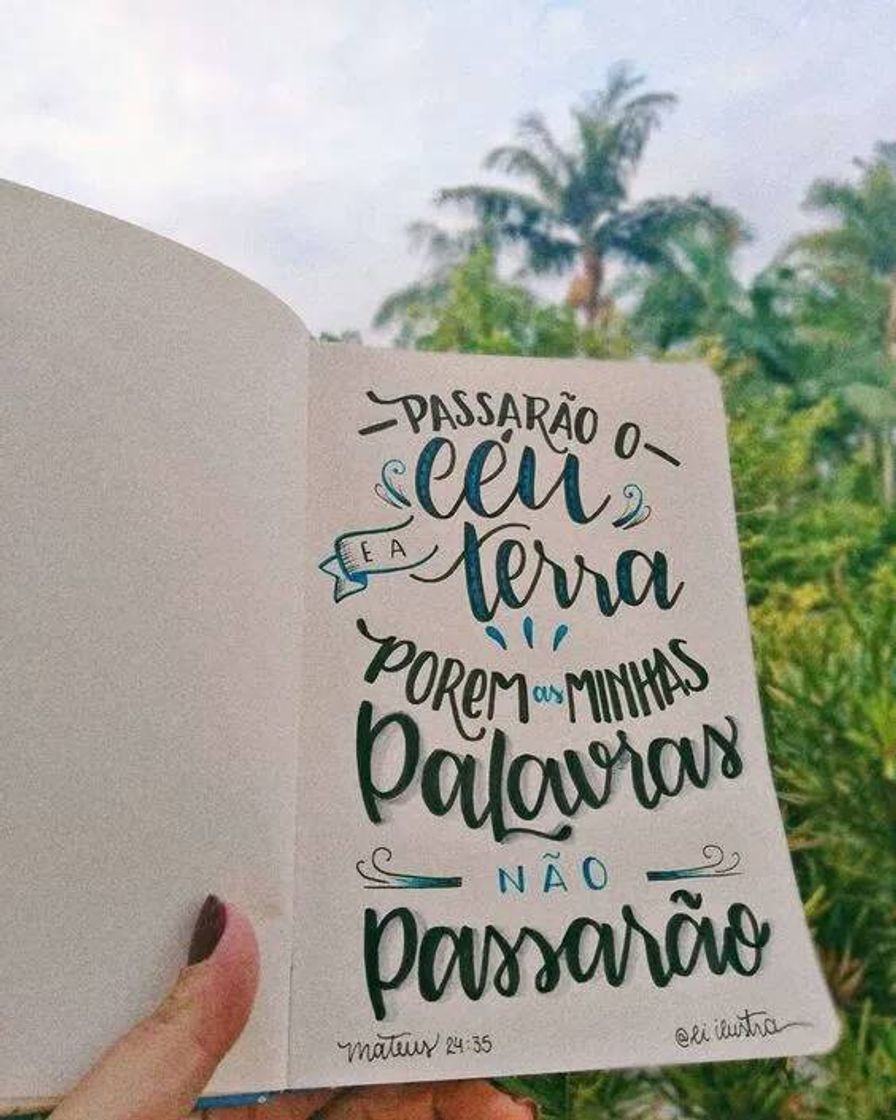 PASSARÃO O
céu
E A terra
POREM as MINHAS
Palavras
NÃO
Passarão
mateus 24:35
@li ilustra